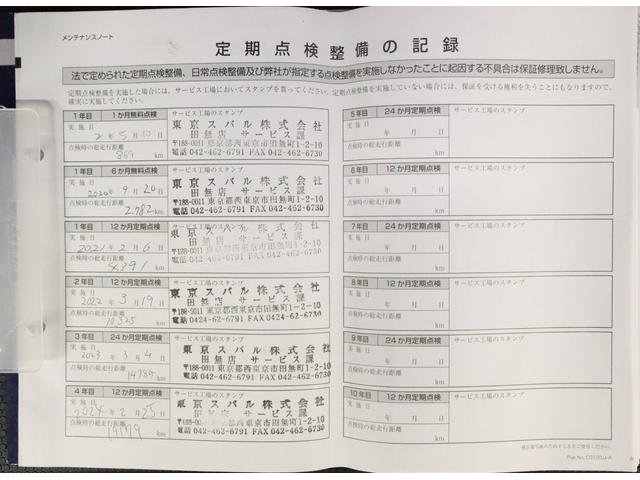 メンテナンスノート
定期点検整備の記録
法で定められた定期点検整備、日常点検整備及び弊社が指定する点検整備を実施しなかったことに起因する不具合は保証修理致しません。
定期点検整備を実施した場合には、サービス工場においてスタンプを貰ってください。定期点検整備を実施していない場合には、保証を受ける権利を失うことにもなりますので、
確実に実施してください。
1年目 1か月無料点検 サービス工場のスタンプ
実施日
2年5月10日
点検時の総走行距離
869 km
東京スバル株式会社
田無店 サービス課
〒188-0011 東京都西東京市田無町1-2-10
電話 042-462-6791 FAX 042-462-6730
1年目 6か月無料点検 サービス工場のスタンプ
実施日
2020年9月20日
点検時の総走行距離
2,782 km
東京スバル株式会社
田無店 サービス課
〒188-0011 東京都西東京市田無町1-2-10
電話 042-462-6791 FAX 042-462-6730
1年目 12か月定期点検 サービス工場のスタンプ
実施日
2021年2月6日
点検時の総走行距離
km
東京スバル株式会社
田無店 サービス課
〒188-0011 東京都西東京市田無町1-2-10
電話 042-462-6791 FAX 042-462-6730
2年目 24か月定期点検 サービス工場のスタンプ
実施日
2022年3月19日
点検時の総走行距離
10,325 km
東京スバル株式会社
田無店 サービス課
〒188-0011 東京都西東京市田無町1-2-10
電話 0424-62-6791 FAX 0424-62-6730
3年目 12か月定期点検 サービス工場のスタンプ
実施日
2023年3月4日
点検時の総走行距離
km
東京スバル株式会社
田無店 サービス課
〒188-0011 東京都西東京市田無町1-2-10
電話 042-462-6791 FAX 042-462-6730
4年目 12か月定期点検 サービス工場のスタンプ
実施日
2024年2月25日
点検時の総走行距離
km
東京スバル株式会社
田無店 サービス課
〒188-0011 東京都西東京市田無町1-2-10
電話 042-462-6791 FAX 042-462-6730
5年目 24か月定期点検 サービス工場のスタンプ
実施日
年 月 日
点検時の総走行距離
km
6年目 12か月定期点検 サービス工場のスタンプ
実施日
年 月 日
点検時の総走行距離
km
7年目 24か月定期点検 サービス工場のスタンプ
実施日
年 月 日
点検時の総走行距離
km
8年目 12か月定期点検 サービス工場のスタンプ
実施日
年 月 日
点検時の総走行距離
km
9年目 24か月定期点検 サービス工場のスタンプ
実施日
年 月 日
点検時の総走行距離
km
10年目 12か月定期点検 サービス工場のスタンプ
実施日
年 月 日
点検時の総走行距離
km